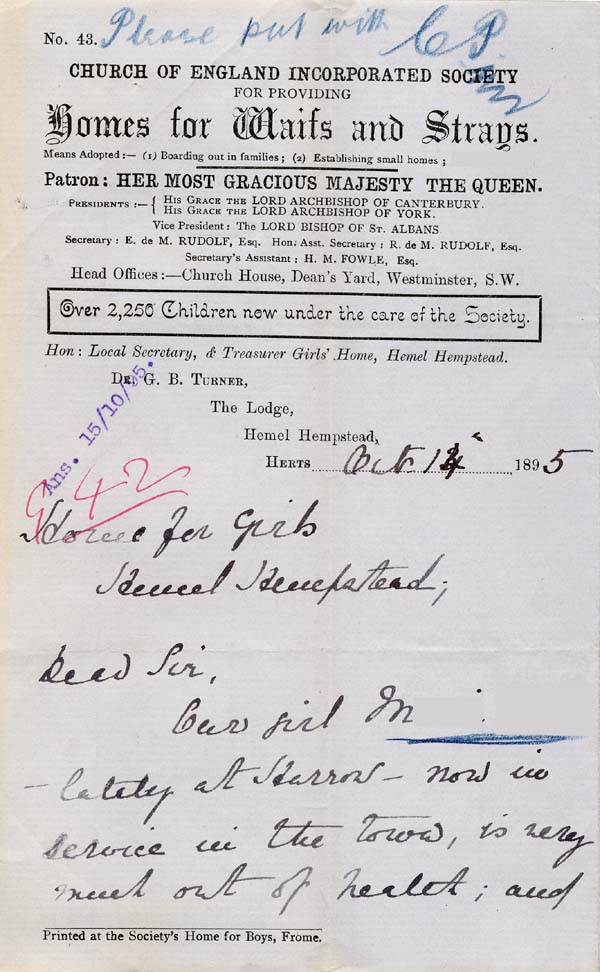 No. 43. Please put with C P
CHURCH OF ENGLAND INCORPORATED SOCIETY
FOR PROVIDING
Homes for Waifs and Strays.
Means Adopted:— (1) Boarding out in families; (2) Establishing small homes;
Patron: HER MOST GRACIOUS MAJESTY THE QUEEN.
PRESIDENTS:—{ HIS GRACE THE LORD ARCHBISHOP OF CANTERBURY.
HIS GRACE THE LORD ARCHBISHOP OF YORK.
Vice President: The LORD BISHOP OF ST. ALBANS
Secretary: E. de M. RUDOLF, Esq. Hon. Asst. Secretary: R. de M. RUDOLF, Esq.
Secretary's Assistant: H. M. FOWLE, Esq.
Head Offices:—Church House, Dean's Yard, Westminster, S.W.
Over 2,250 Children now under the care of the Society.
Hon: Local Secretary, & Treasurer Girls' Home, Hemel Hempstead.
DR. G. B. TURNER,
The Lodge,
Hemel Hempstead,
HERTS Oct. 14 1895
Ans. 15/10/95.
G 42
Home for Girls
Hemel Hempstead;
Dear Sir,
Our girl M
- lately at Harrow - now in
service in the town, is very
much out of health; and
Printed at the Society's Home for Boys, Frome.